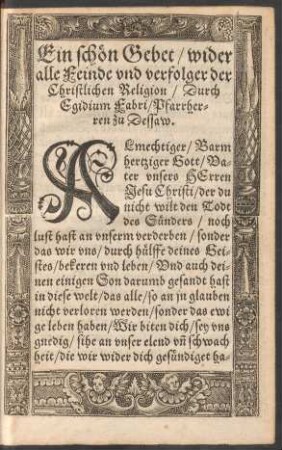 Ein schön Gebet / wider
alle Feinde vnd verfolger der
Christlichen Religion / Durch
Egidium Fabri / Pfarrher-
ren zu Dessaw.
ALmechtiger / Barm
hertziger Gott / Va-
ter vnsers HErren
Jesu Christi / der du
nicht wilt den Todt
des Sünders / noch
lust hast an vnserm verderben / sonder
das wir vns / durch hülffe deines Gei-
stes / bekeren vnd leben / Vnd auch dei-
nen einigen Son darumb gesandt hast
in diese welt / das alle / so an jn glauben
nicht verloren werden / sonder das ewi
ge leben haben / Wir biten dich / sey vns
gnedig / sihe an vnser elend vñ schwach
heit / die wir wider dich gesündiget ha-